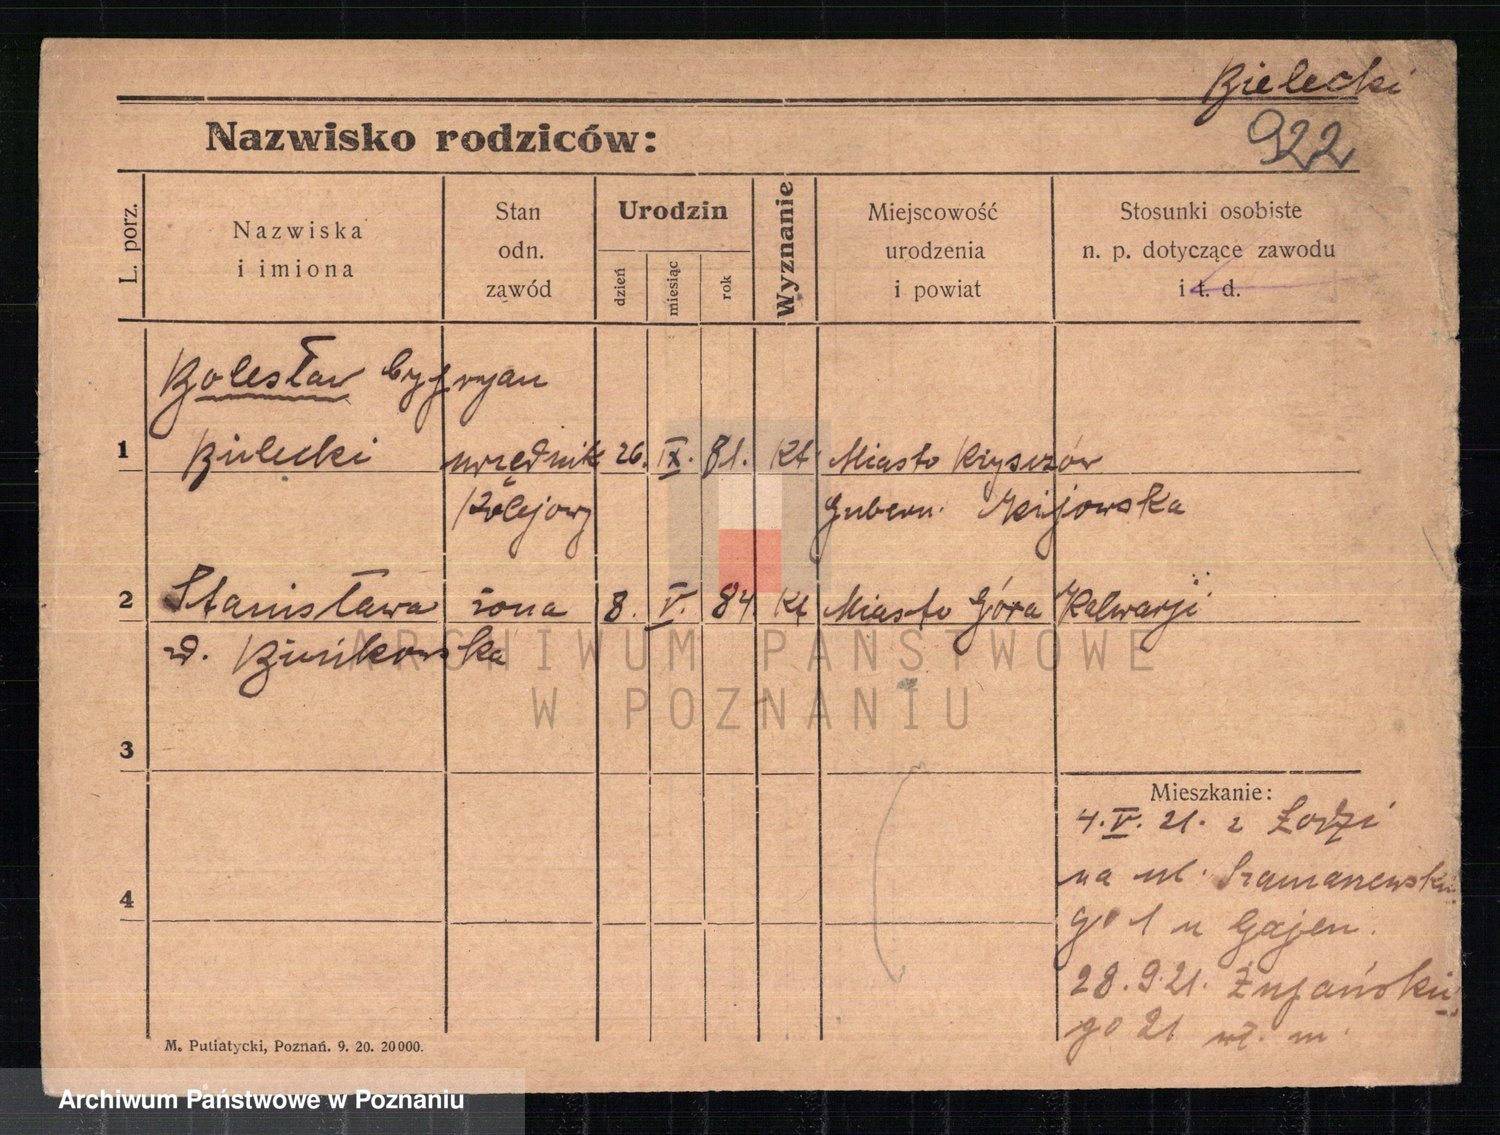 Bielecki
922
Nazwisko rodziców:
L. porz.
Nazwiska
i imiona
Stan
odn.
ząwód
Urodzin
dzień
miesiąc
rok
Wyznanie
Miejscowość
urodzenia
i powiat
Stosunki osobiste
n. p. dotyczące zawodu
i t. d.
Bolesław Cypryan
1 Bielecki urzędnik 26. IX. 81. Kt. Miasto
kolejowy Gubern. Kijowska
2 Stanisława żona 8. V. 84 Kt Miasto Góra Kalwarji
ARCHIWUM PAŃSTWOWE
W POZNANIU
3
Mieszkanie:
4. V. 21. z Łodzi
na ul. Szamarzewskie
4
go 1 u Gajen.
28.9.21. Żupańskie
go 21 wł. m.
M. Putiatycki, Poznań. 9. 20. 20000.
Archiwum Państwowe w Poznaniu